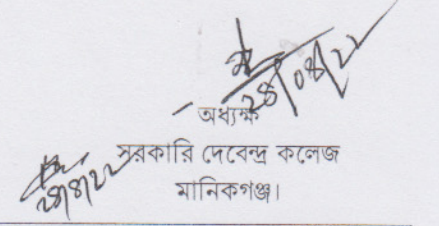 28/08/22
অধ্যক্ষ
সরকারি দেবেন্দ্র কলেজ
28/8/22
মানিকগঞ্জ।